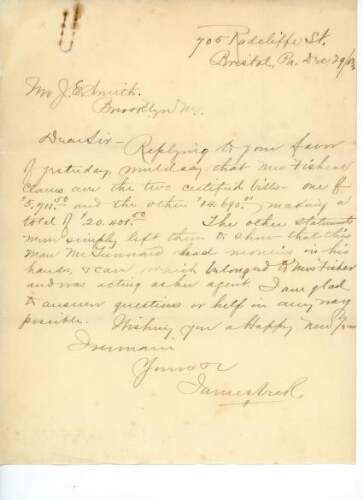 700 Radcliffe St.
Bristol, Pa. Dec 29/
Mr J. E. Smith.
Brooklyn
Dear Sir - Replying to your favor
of yesterday would say that Mrs Fishers
claims are the two certified bills - one of
$5,711.50 and the other $14,690.00 making a
total of $20.401.50 The other statements
were simply left there to show that this
man had monies in his
hands, which belonged to Mrs Fisher
and was acting as her agent. I am glad
to answer questions or help in any way
possible. Wishing you a Happy New Year
I remain
Yours
James